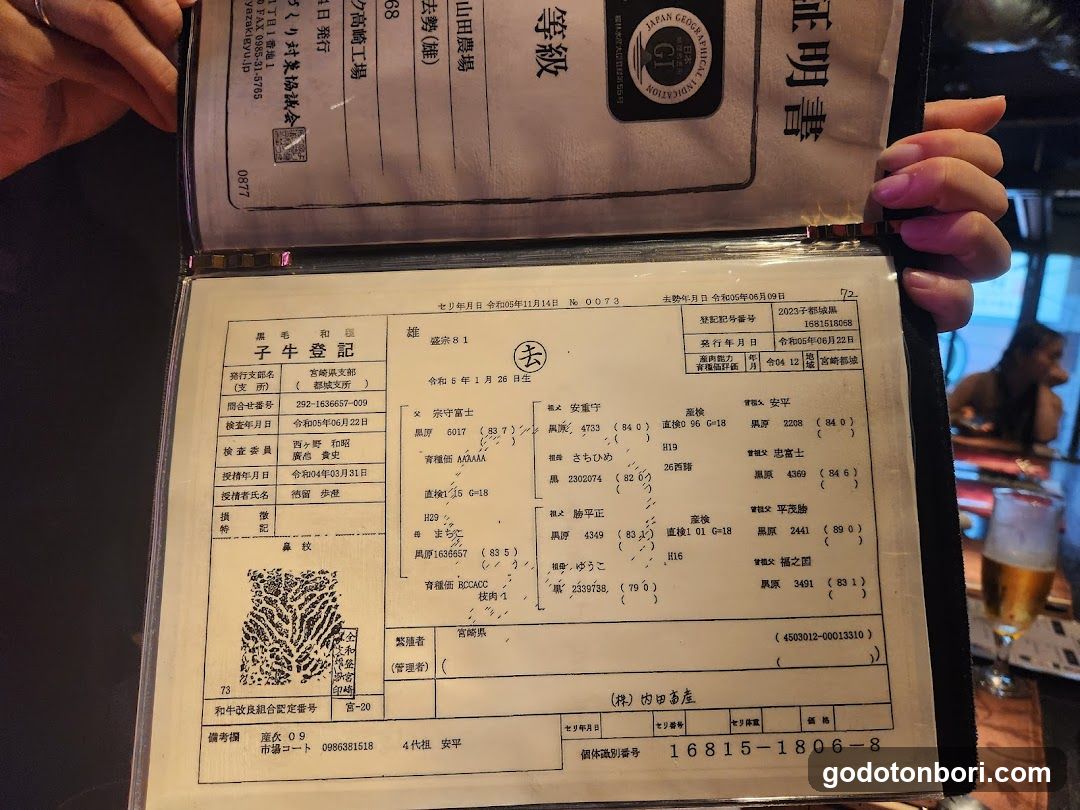 証明書
等級
JAPAN GEOGRAPHICAL INDICATION
GI
山田農場
去勢(雄)
68
ク高崎工場
4日 発行
づくり対策協議会
1丁目1番地1
0 FAX 0985-31-5765
yazakigyu.jp
0877
セリ年月日 令和05年11月14日 № 0073 去勢年月日 令和05年06月09日
72
黒毛和種
子牛登記
雄
盛宗81
去
令和 5 年 1 月 26 日生
登記記号番号 2023子都城黒
1681518068
発行年月日 令和05年06月22日
産肉能力
育種価評価 年月 令04 12 地域 宮崎都城
発行支部名 宮崎県支部
(支 所) ( 都城支所 )
問合せ番号 292-1636657-009
検査年月日 令和05年06月22日
検査委員 西ヶ野 和昭
廣島 貴史
授精年月日 令和04年03月31日
授精者氏名 徳留 歩澄
損徴
特記
鼻紋
73
和牛改良組合認定番号 宮-20
父 宗守富士
黒原 6017 (83.7)
育種価 AAAAAA
直検1 15 G=18
H29
母 まちこ
黒原1636657 (83.5)
育種価 BCCACC
枝肉 1
祖父 安重守
黒原 4733 (84.0)
祖母 さちひめ
黒 2302074 (82.0)
祖父 勝平正
黒原 4349 (83.1)
祖母 ゆうこ
黒 2339738 (79.0)
産検
直検0 96 G=18
H19
26西諸
産検
直検1 01 G=18
H16
曽祖父 安平
黒原 2208 (84.0)
曽祖父 忠富士
黒原 4369 (84.6)
曽祖父 平茂勝
黒原 2441 (89.0)
曽祖父 福之国
黒原 3491 (83.1)
繁殖者 宮崎県 ( 4503012-00013310 )
(管理者)
(株) 内田畜産
備考欄 産次 09
市場コート 0986381518 4代祖 安平
セリ年月日 セリ番号 セリ体重 価格
個体識別番号 16815-1806-8
godotonbori.com